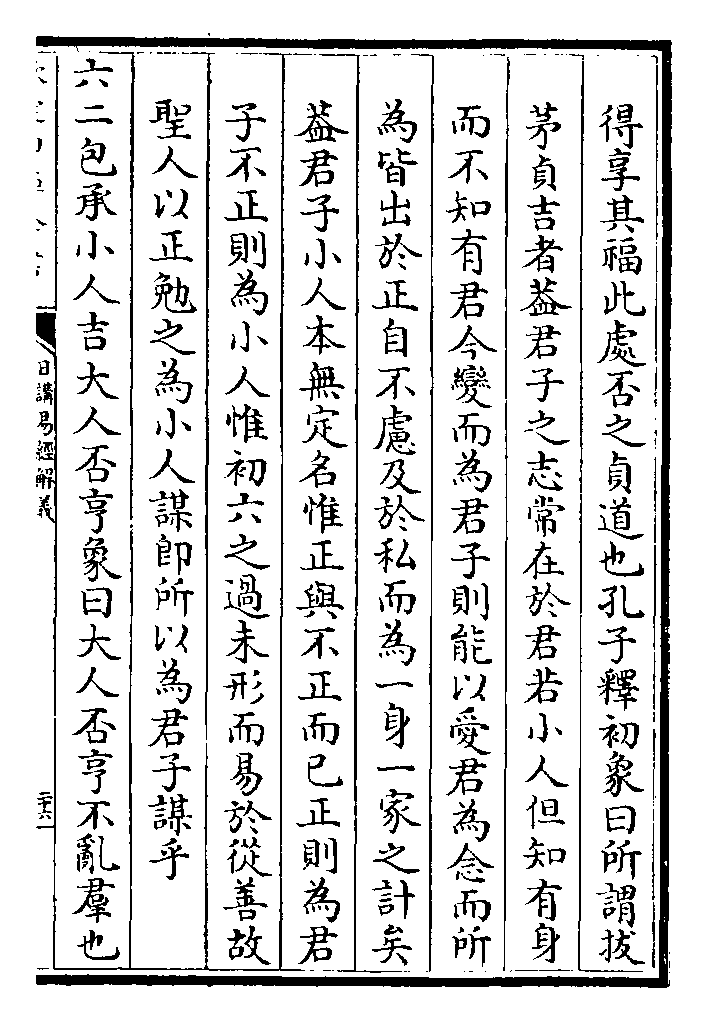 得享其福此處否之貞道也孔子釋初象曰所謂拔
茅貞吉者葢君子之志常在於君若小人但知有身
而不知有君今變而為君子則能以愛君為念而所
為皆出於正自不慮及於私而為一身一家之計矣
葢君子小人本無定名惟正與不正而已正則為君
子不正則為小人惟初六之過未形而易於從善故
聖人以正勉之為小人謀卽所以為君子謀乎
六二包承小人吉大人否亨象曰大人否亨不亂羣也
日講易經解義
二十六